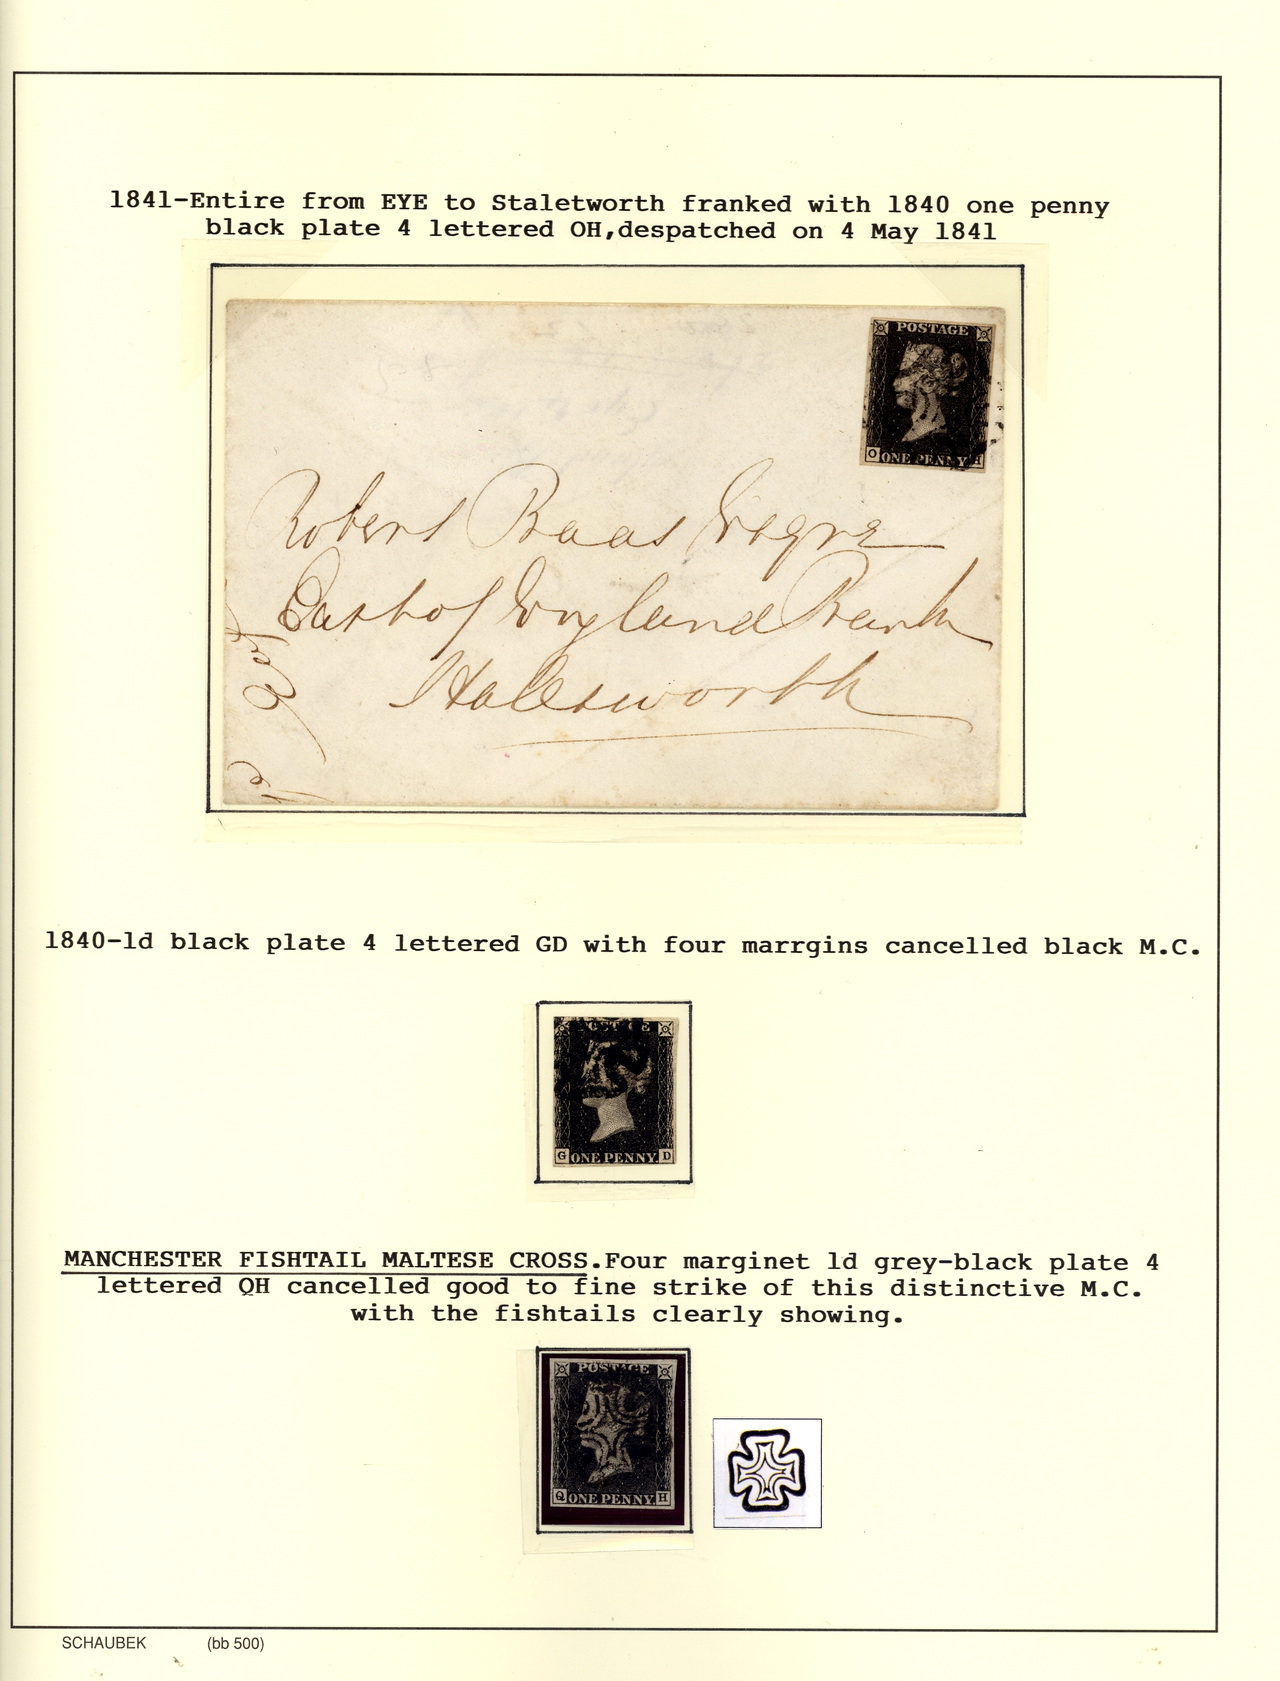 1841-Entire from EYE to Staletworth franked with 1840 one penny
black plate 4 lettered OH,despatched on 4 May 1841
POSTAGE
O ONE PENNY H
Robert Baas Esqre
East of England Bank
Halesworth
1840-1d black plate 4 lettered GD with four marrgins cancelled black M.C.
POSTAGE
G ONE PENNY. D
MANCHESTER FISHTAIL MALTESE CROSS.Four marginet 1d grey-black plate 4
lettered QH cancelled good to fine strike of this distinctive M.C.
with the fishtails clearly showing.
POSTAGE
Q ONE PENNY. H
SCHAUBEK (bb 500)